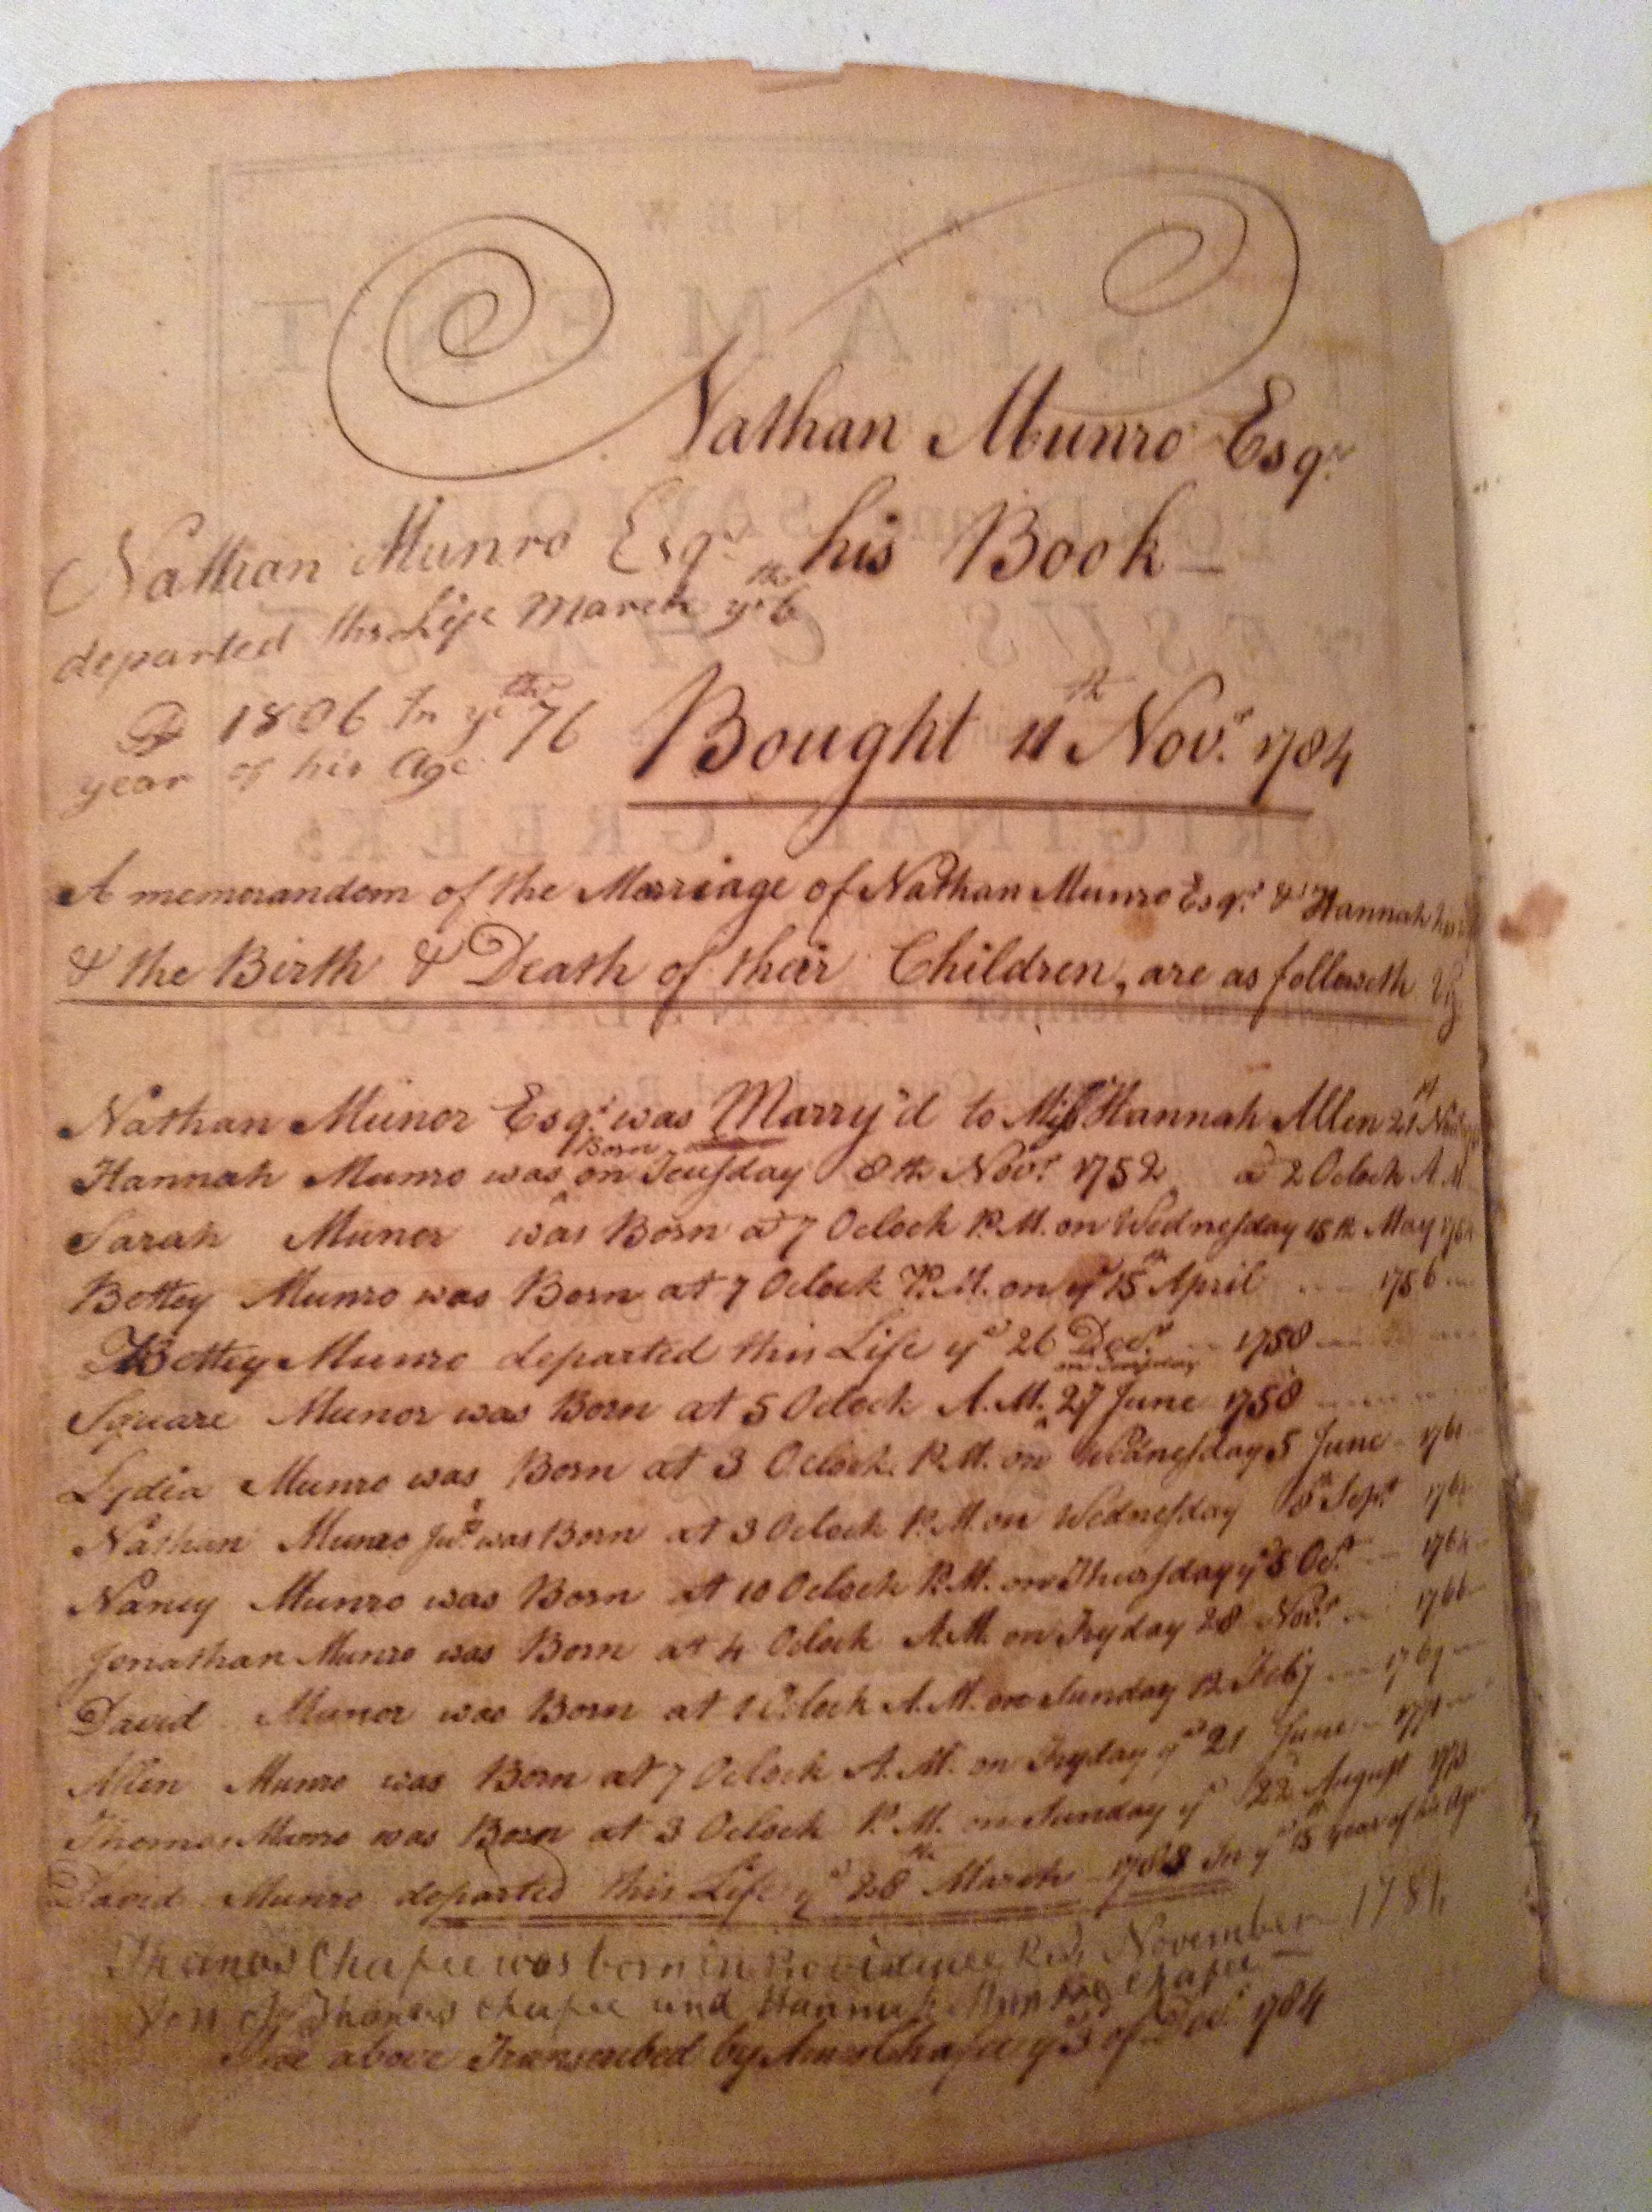 Nathan Munro Esqr.
his Book
Nathan Munro Esqr
departed this Life March ye 6th
1806 In ye 76th
year of his Age
Bought 11th Novr. 1784
A memorandom of the Marriage of Nathan Munro Esqr. & Hannah
& the Birth & Death of their Children, are as followeth Viz
Nathan Munor Esqr. was Marry'd to Miss Hannah Allen 21st
Hannah Munro was Born on Teusday 8th Novr. 1752 at 2 Oclock A.M
Sarah Munor was Born at 7 Oclock P.M. on Wednesday 15th May 1754
Bettey Munro was Born at 7 Oclock P.M. on ye 15th April 1756
Bettey Munro departed this Life ye 26 Decr. 1758
Square Munor was Born at 5 Oclock A.M. on Teusday 27 June 1758
Lydia Munro was Born at 3 Oclock P.M. on Wednesday 5 June 1761
Nathan Munro Junr. was Born at 3 Oclock P.M. on Wednesday Sept
Nancy Munro was Born at 10 Oclock P.M. on Thursday ye 5 Oct. 1764
Jonathan Munro was Born at 4 Oclock A.M. on Fryday 28 Novr. 1766
David Munor was Born at 1 Oclock A.M. on Sunday 12 Feby 1769
Allen Munro was Born at 7 Oclock A.M. on Fryday ye 21 June 1771
Thomas Munro was Born at 3 Oclock P.M. on Sunday ye 22 August 1773
David Munro departed this Life ye 28th March 1783 In ye 15th year of his Age
Thomas Chafee was born in Providence November 1784
Son of Thomas Chafee and Hannah Munro Chafee
The above Transcribed by Amos Chafee ye 3d of Decr. 1784